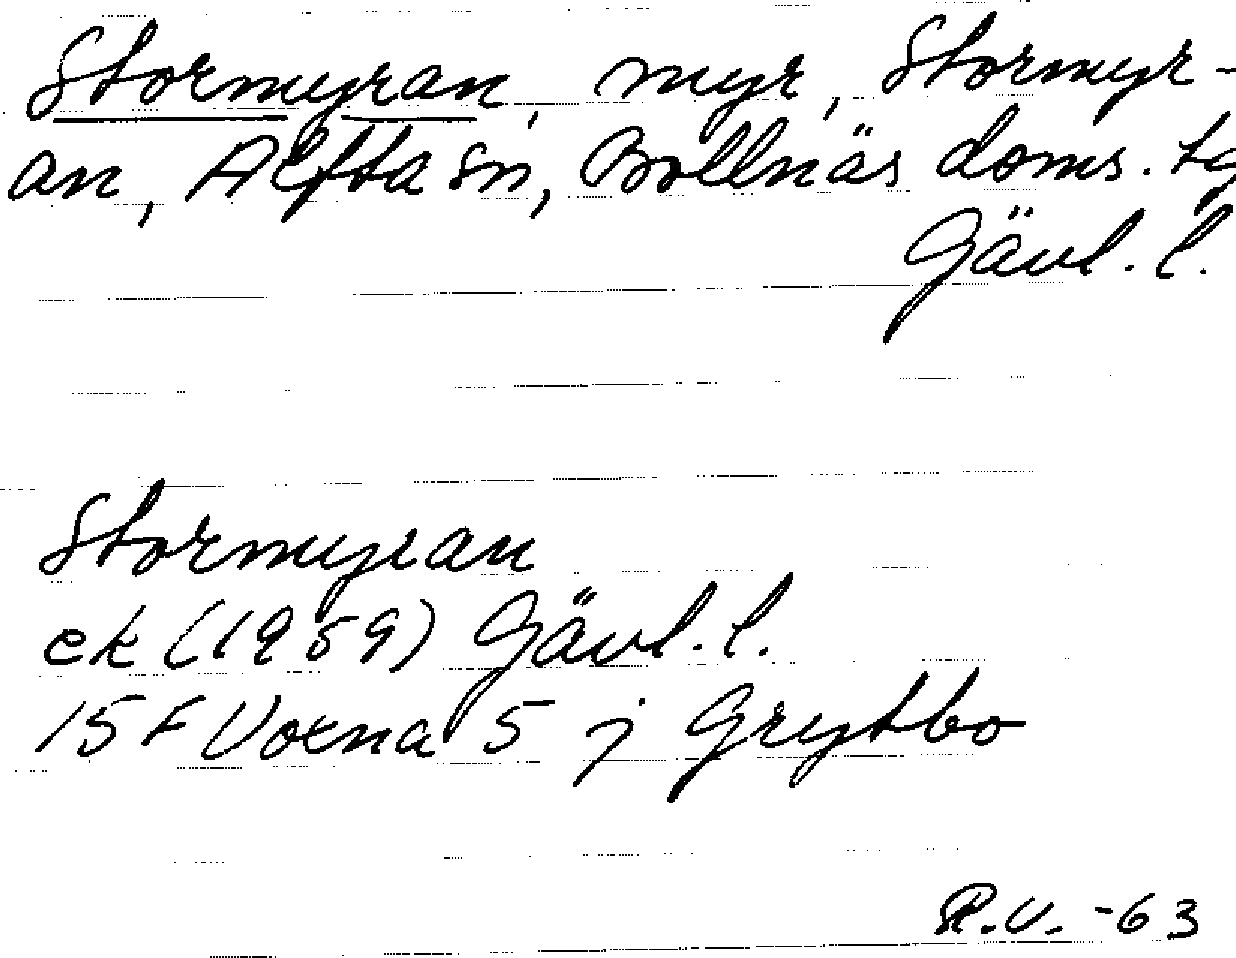 Stormyran, myr, Stormyr-
an, Alfta sn, Bollnäs doms. tg
Gävl. l.
Stormyran
ek (1959) Gävl. l.
15 F Voxna 5 j Grytbo
R.V. -63